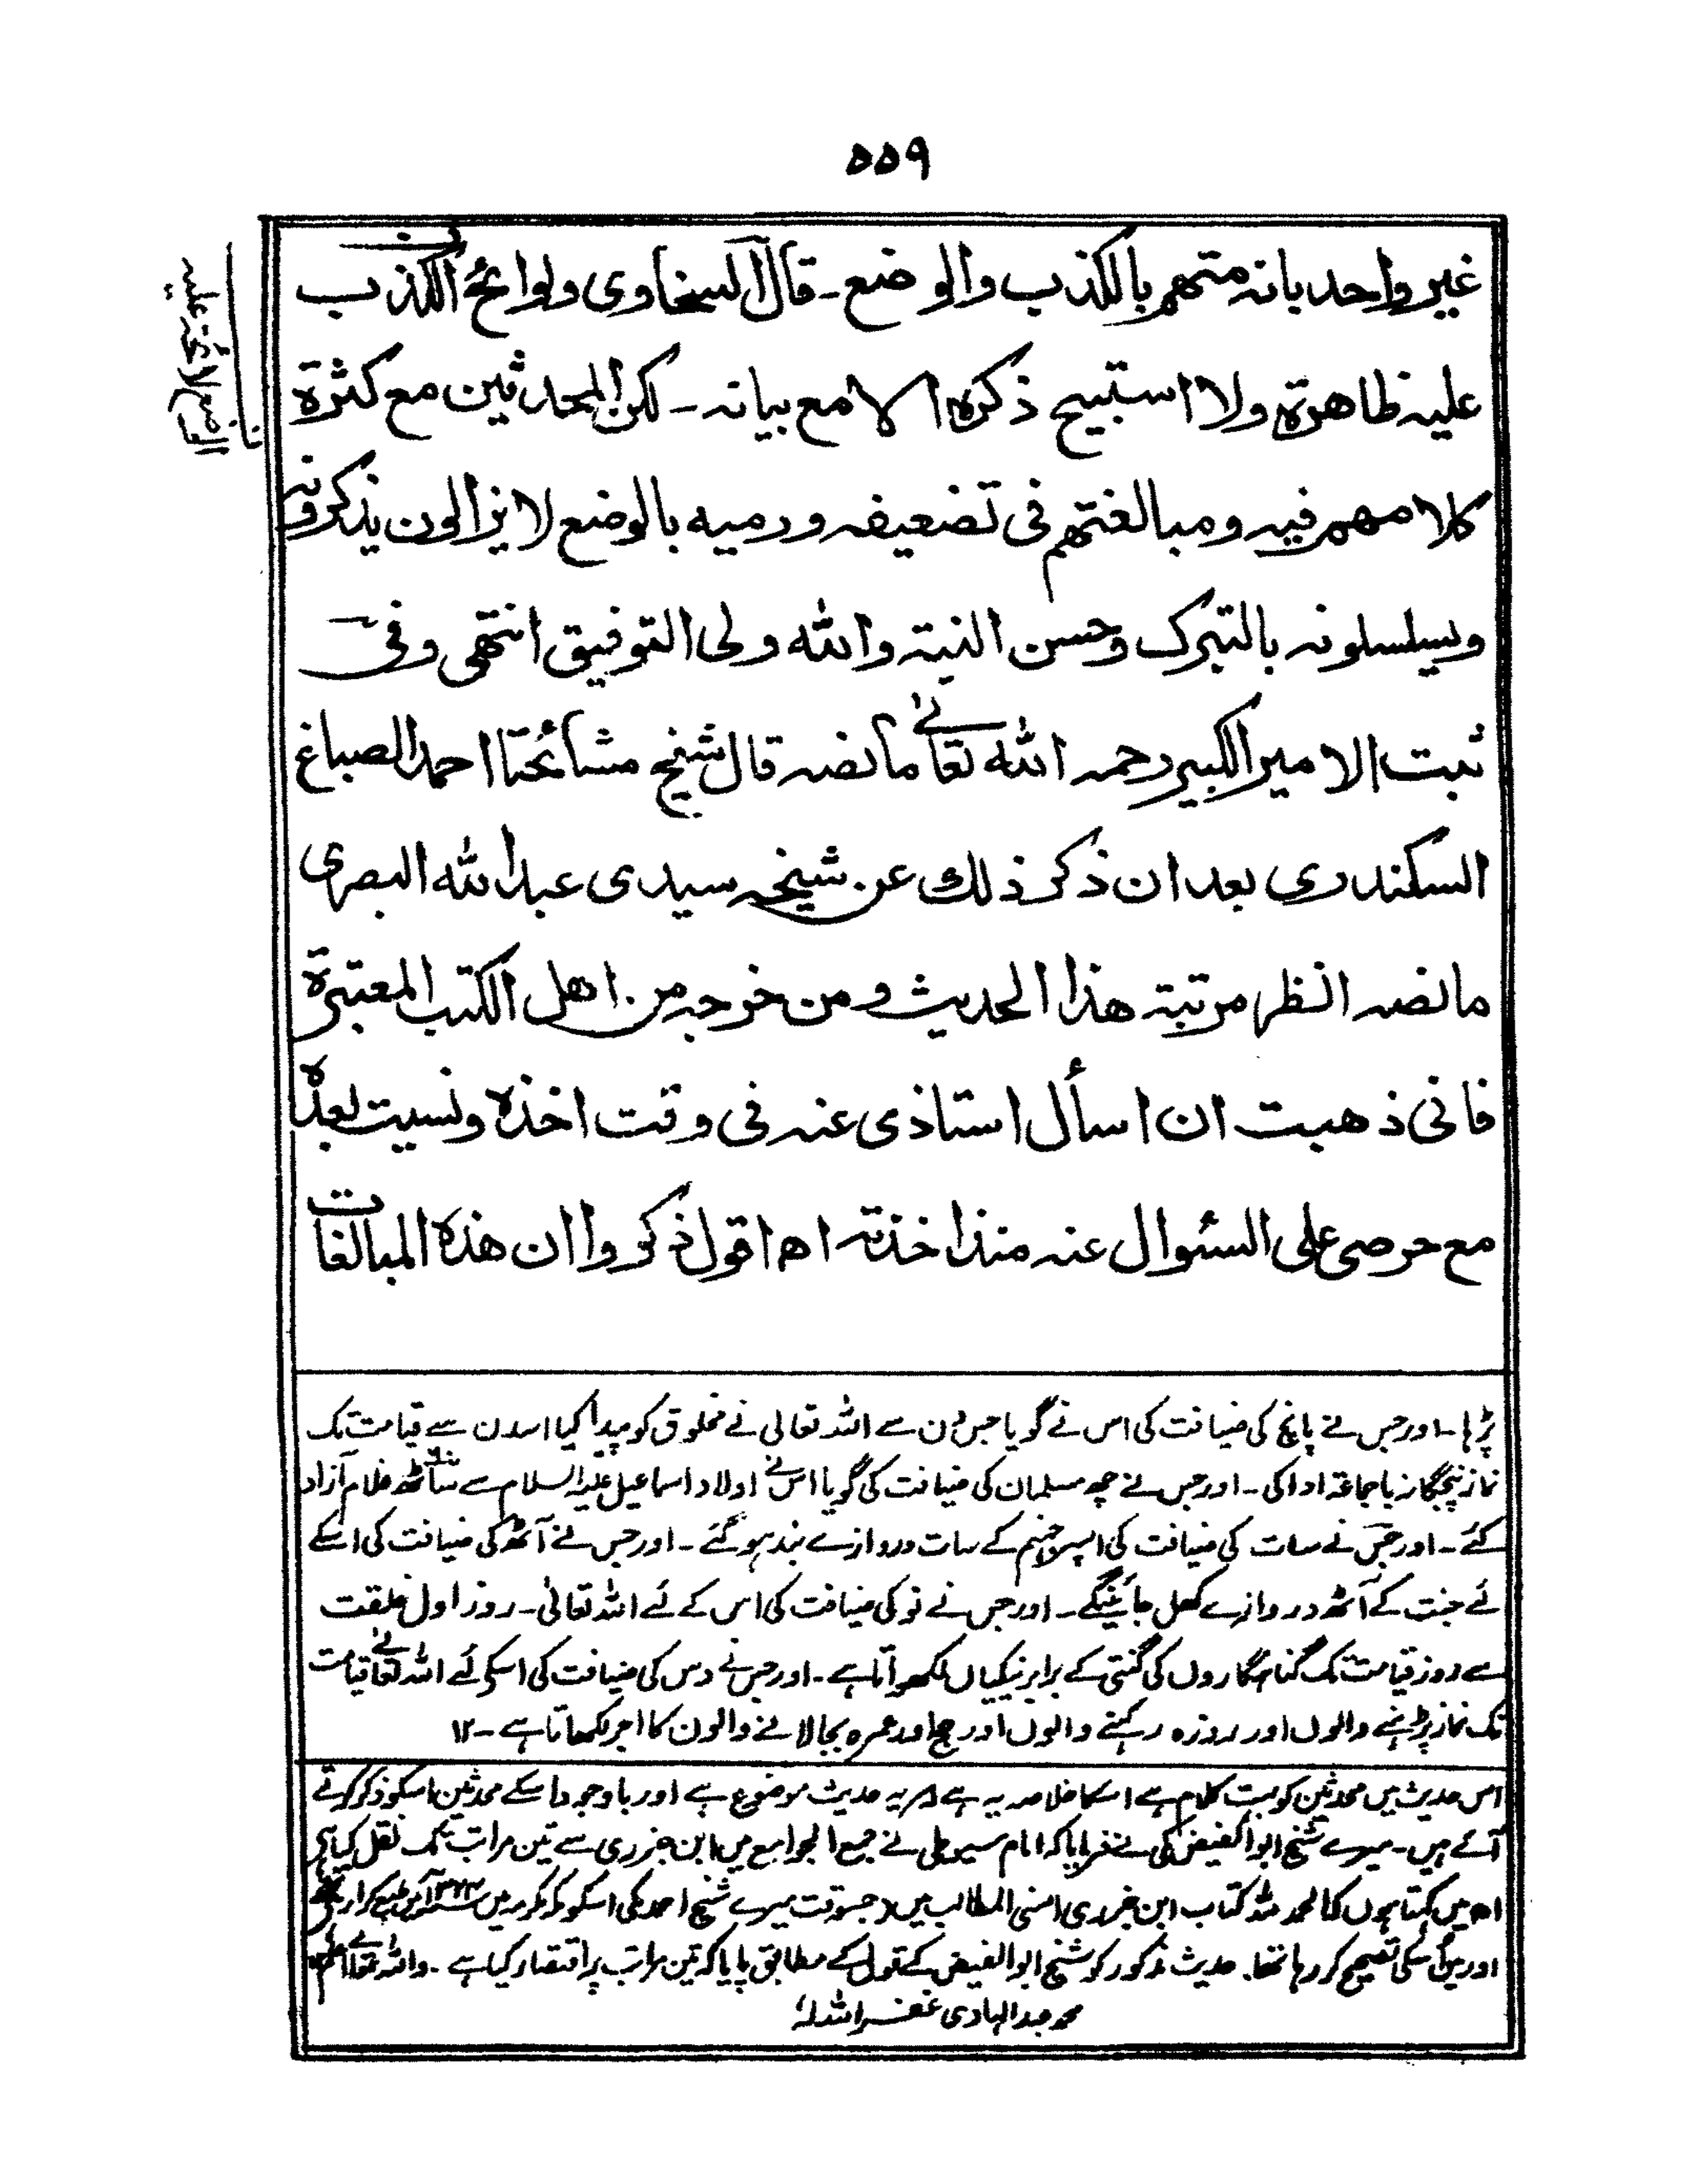 ٥٥٩
غير واحد بانه متهم بالكذب والوضع ـ قال السخاوى ولوائح الكذب
عليه ظاهرة ولا استبيح ذكره الا مع بيانه ـ لكن المحدثين مع كثرة
كلامهم فيه ومبالغتهم فى تضعيفه ورميه بالوضع لا يزالون يذكرونه
ويسلسلونه بالتبرك وحسن النية والله ولى التوفيق انتهى وفى
ثبت الامير الكبير رحمه الله تعالى ما نصه قال شيخ مشائخنا احمد الصباغ
السكندرى بعد ان ذكر ذلك عن شيخه سيدى عبد الله البصرى
ما نصه انظر مرتبة هذا الحديث ومن خرجه من اهل الكتب المعتبرة
فانى ذهبت ان اسأل استاذى عنه فى وقت اخذه ونسيت بعده
مع حرصى على السئوال عنه منذ اخذته اه اقول ذكروا ان هذه المبالغات
پڑہا ـ اور جس نے پانچ کی ضیافت کی اس نے گویا جس دن سے اللہ تعالی نے مخلوق کو پیدا کیا اسدن سے قیامت تک
نماز پنجگانہ با جماعۃ ادا کی ـ اور جس نے چھ مسلمان کی ضیافت کی گویا اس نے اولاد اسماعیل علیہ السلام سے ساٹھ غلام آزاد
کئے ـ اور جس نے سات کی ضیافت کی اسپر جہنم کے سات دروازے بند ہو گئے ـ اور جس نے آٹھ کی ضیافت کی اسکے
لئے جنت کے آٹھ دروازے کھل جائینگے ـ اور جس نے نو کی ضیافت کی اس کے لئے اللہ تعالٰی ـ روز اول خلقت
سے روز قیامت تک گناہگاروں کی گنتی کے برابر نیکیاں لکھواتا ہے ـ اور جس نے دس کی ضیافت کی اسکے لئے اللہ تعالٰے قیامت
تک نماز پڑہنے والوں اور روزہ رکہنے والوں اور حج اور عمرہ بجا لانے والون کا اجر لکھاتا ہے ـ ۱۲
اس حدیث میں محدثین کو بہت کلام ہے اسکا خلاصہ یہ ہے کہ یہ حدیث موضوع ہے اور باوجود اسکے محدثین اسکو ذکر کرتے
آئے ہیں ـ میرے شیخ ابو الفیض مکی نے فرمایا کہ امام سیوطی نے جمع الجوامع میں ابن جزری سے تین مراتب تک نقل کیا ہے
اھ میں کہتا ہوں کہ الحمد للہ کتاب ابن جزری اسنی المطالب میں (جسوقت میرے شیخ احمد مکی اسکو مکہ مکرمہ میں
اور میں اسکی تصحیح کر رہا تھا. حدیث مذکور کو شیخ ابو الفیض کے قول کے مطابق پایا کہ تین مراتب پر اقتصار کیا ہے ـ واللہ تعالٰے اعلم
محمد عبد الہادی غفر اللہ لہ